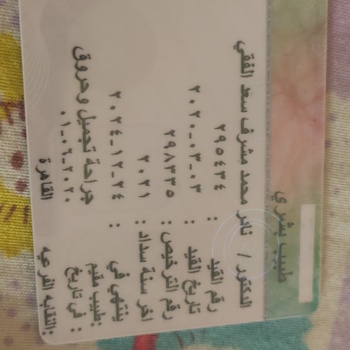 طبيب بشري
الدكتور / نادر محمد مشرف سعد الفقي
رقم القيد : ٢٩٥٤٣٤
تاريخ القيد : ٢٠٢٠-٠٣-٠٣
رقم الترخيص : ٢٩٨٣٣٥
اخر سنة سداد : ٢٠٢١
ينتهي في : ٢٠٢٤-١٢-٢٤
طبيب مقيم : جراحة تجميل وحروق
في تاريخ : ٢٠٢٠-٠٦-٠١
النقابه الفرعيه : القاهرة